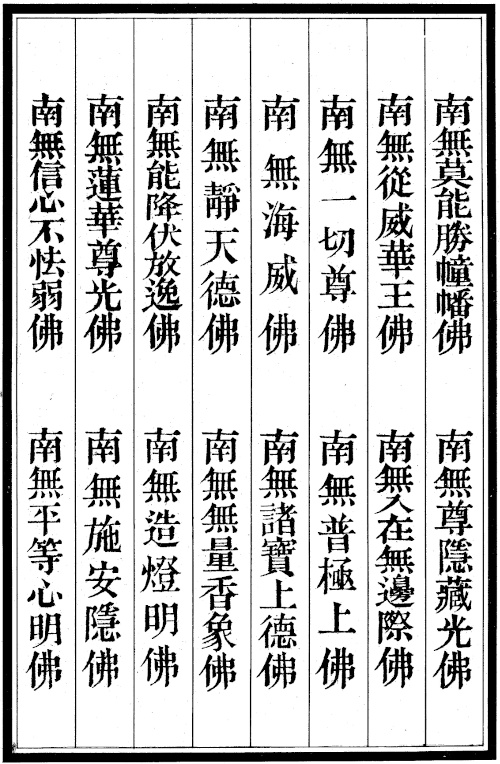 南無莫能勝幢幡佛
南無尊隱藏光佛
南無從威華王佛
南無入在無邊際佛
南無一切尊佛
南無普極上佛
南無海威佛
南無諸寶上德佛
南無靜天德佛
南無無量香象佛
南無能降伏放逸佛
南無造燈明佛
南無蓮華尊光佛
南無施安隱佛
南無信心不怯弱佛
南無平等心明佛